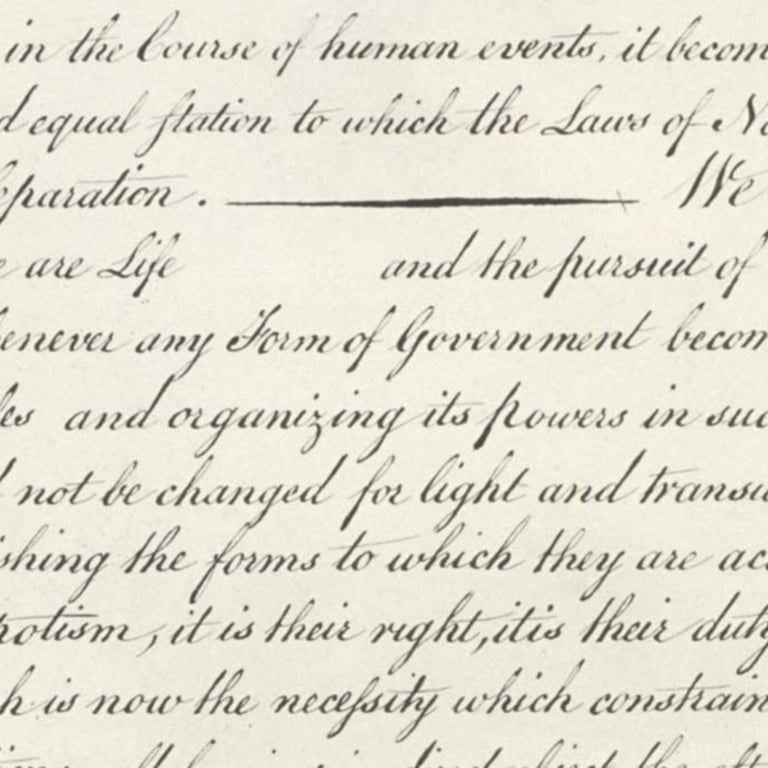 in the Course of human events, it becom
d equal ſtation to which the Laws of Na
eparation. ——— We
e are Life and the pursuit of
henever any Form of Government becom
les and organizing its powers in suc
l not be changed for light and transie
ishing the forms to which they are acc
potism, it is their right, it is their duty
h is now the neceſsity which constrain